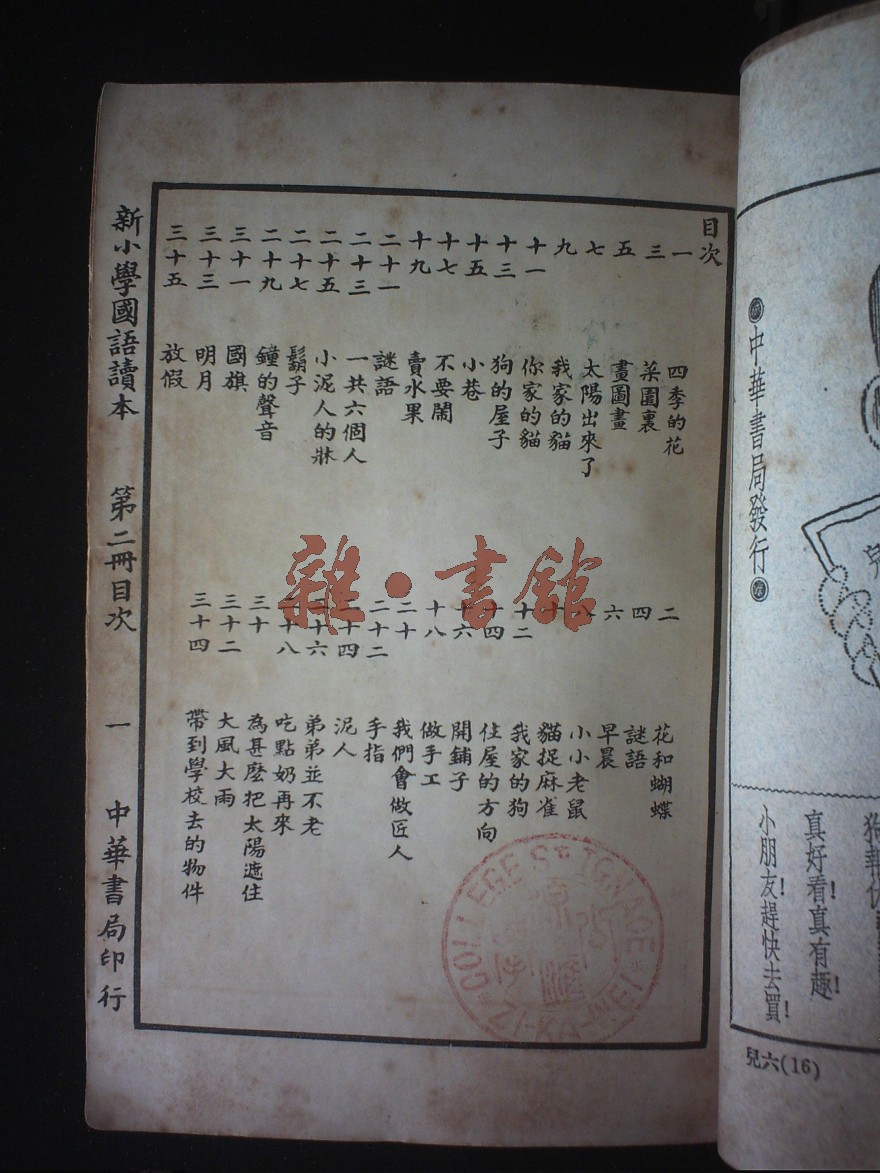 中華書局發行
真好看!真有趣!
小朋友!趕快去買!
兒六(16)
目次
一 四季的花
二 花和蝴蝶
三 菜園裏
四 謎語
五 畫圖畫
六 早晨
七 太陽出來了
八 小小老鼠
九 我家的貓
十 貓捉麻雀
十一 你家的貓
十二 我家的狗
十三 狗的屋子
十四 住屋的方向
十五 小巷
十六 開鋪子
十七 不要鬧
十八 做手工
十九 賣水果
二十 我們會做匠人
二十一 謎語
二十二 手指
二十三 一共六個人
二十四 泥人
二十五 小泥人的牀
二十六 弟弟並不老
二十七 鬍子
二十八 吃點奶再來
二十九 鐘的聲音
三十 為甚麼把太陽遮住
三十一 國旗
三十二 大風大雨
三十三 明月
三十四 帶到學校去的物件
三十五 放假
新小學國語讀本 第二冊目次 一 中華書局印行
雜·書館
COLLEGE ST IGNACE
ZI-KA-WEI